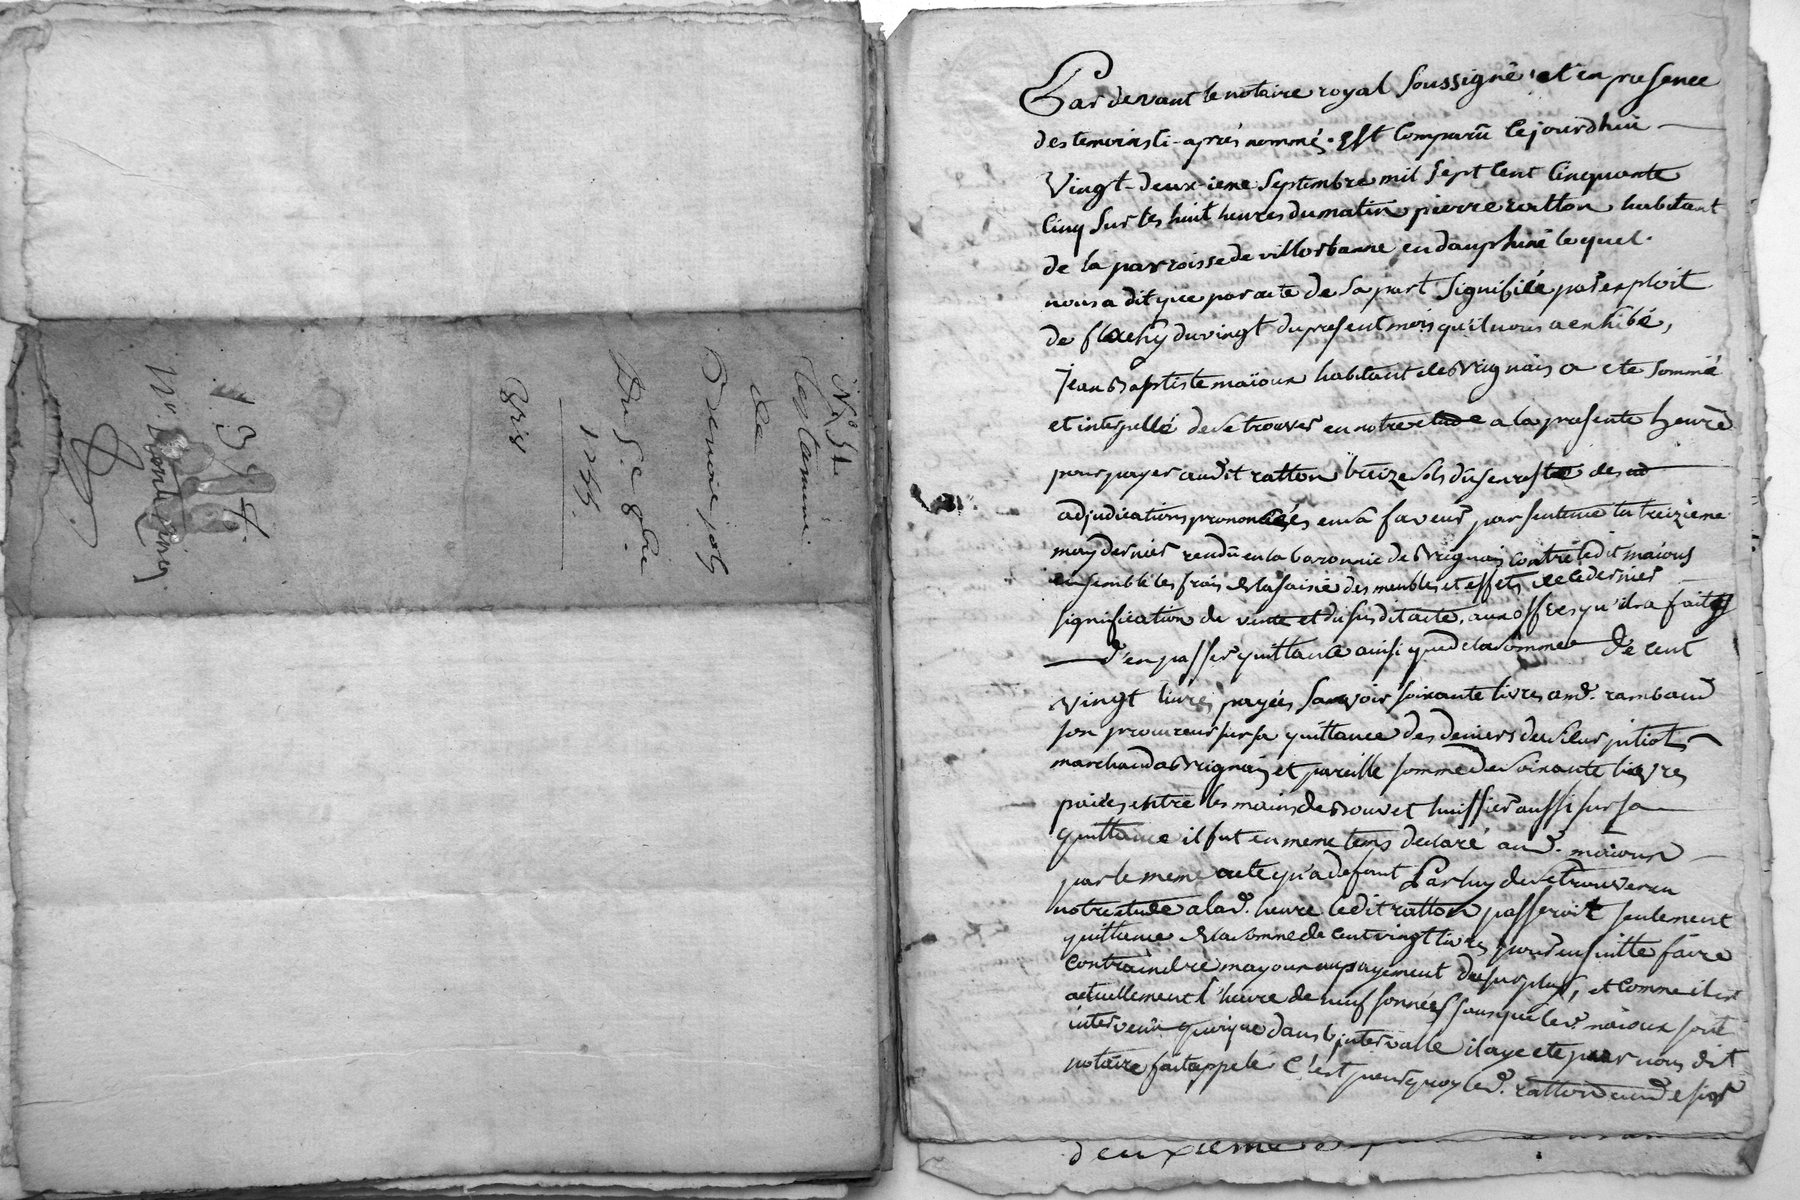 N.° 51
Testament
de
Benoit
1755.
134
Par devant le notaire royal soussigné et en presence
des temoins ci-après nommé. Est Comparu Cejourdhui
Vingt-deux-ieme Septembre mil Sept Cent Cinquante
Cinq Sur les huit heures du matin pierre ratton habitant
de la parroisse de villorbanne en dauphiné lequel
nous a dit que par acte de Sa part Signifiée par exploit
de flachy du vingt du present mois qu'il nous a exhibé,
Jean Baptiste maïoux habitant de Brignais a ete Sommé
et interpellé de Se trouver en notre etude a la presente heure
pour payer audit ratton treize sols du en reste des
adjudications prononcées en Sa faveur par Sentence du treizieme
may dernier rendu en la baronnie de Brignais contre ledit maioux
ensemble les frais de la saisie des meubles et effets de ce dernier
signification de vente et du susdit acte, aux offres qu'il a faites
d'en passer quittance ainsi que de la Somme De cent
Vingt livres payées Savoir Soixante livres a md. rambaud
son procureur sur sa quittance des deniers du Sieur
marchand a Brignais et pareille somme de Soixante livres
paiées entre les mains de Bouvet huissier aussi sur sa
quittance il fut en meme tems declaré aud. maioux
par le meme acte qu'a defaut Par luy de Se trouver en
notre etude a lad. heure ledit ratton passeroit seulement
quittance de la Somme de Cent vingt livres pour ensuitte faire
contraindre mayoux au payement du surplus, et Comme il est
actuellement l'heure de neuf sonnées sans que led. maioux soit
intervenu quoique dans l'intervalle il aye ete par nous dit
notaire fait appelé C'est pourquoy led. ratton
deuxieme